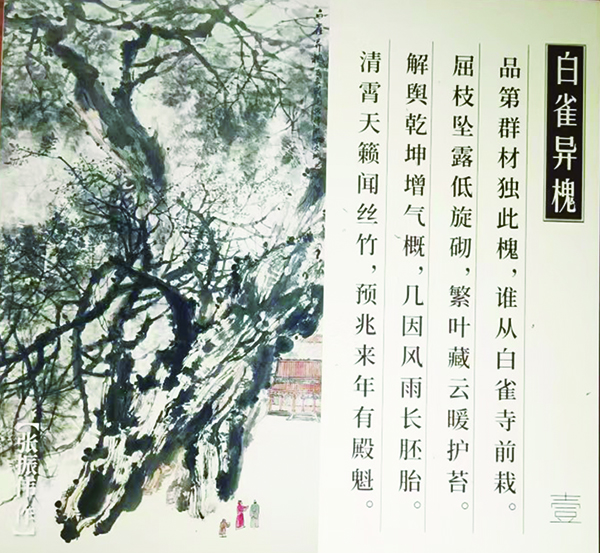 白雀异槐
品第群材独此槐，谁从白雀寺前栽。
屈枝坠露低旋砌，繁叶藏云暖护苔。
解舆乾坤增气概，几因风雨长胚胎。
清霄天籁闻丝竹，预兆来年有殿魁。
壹